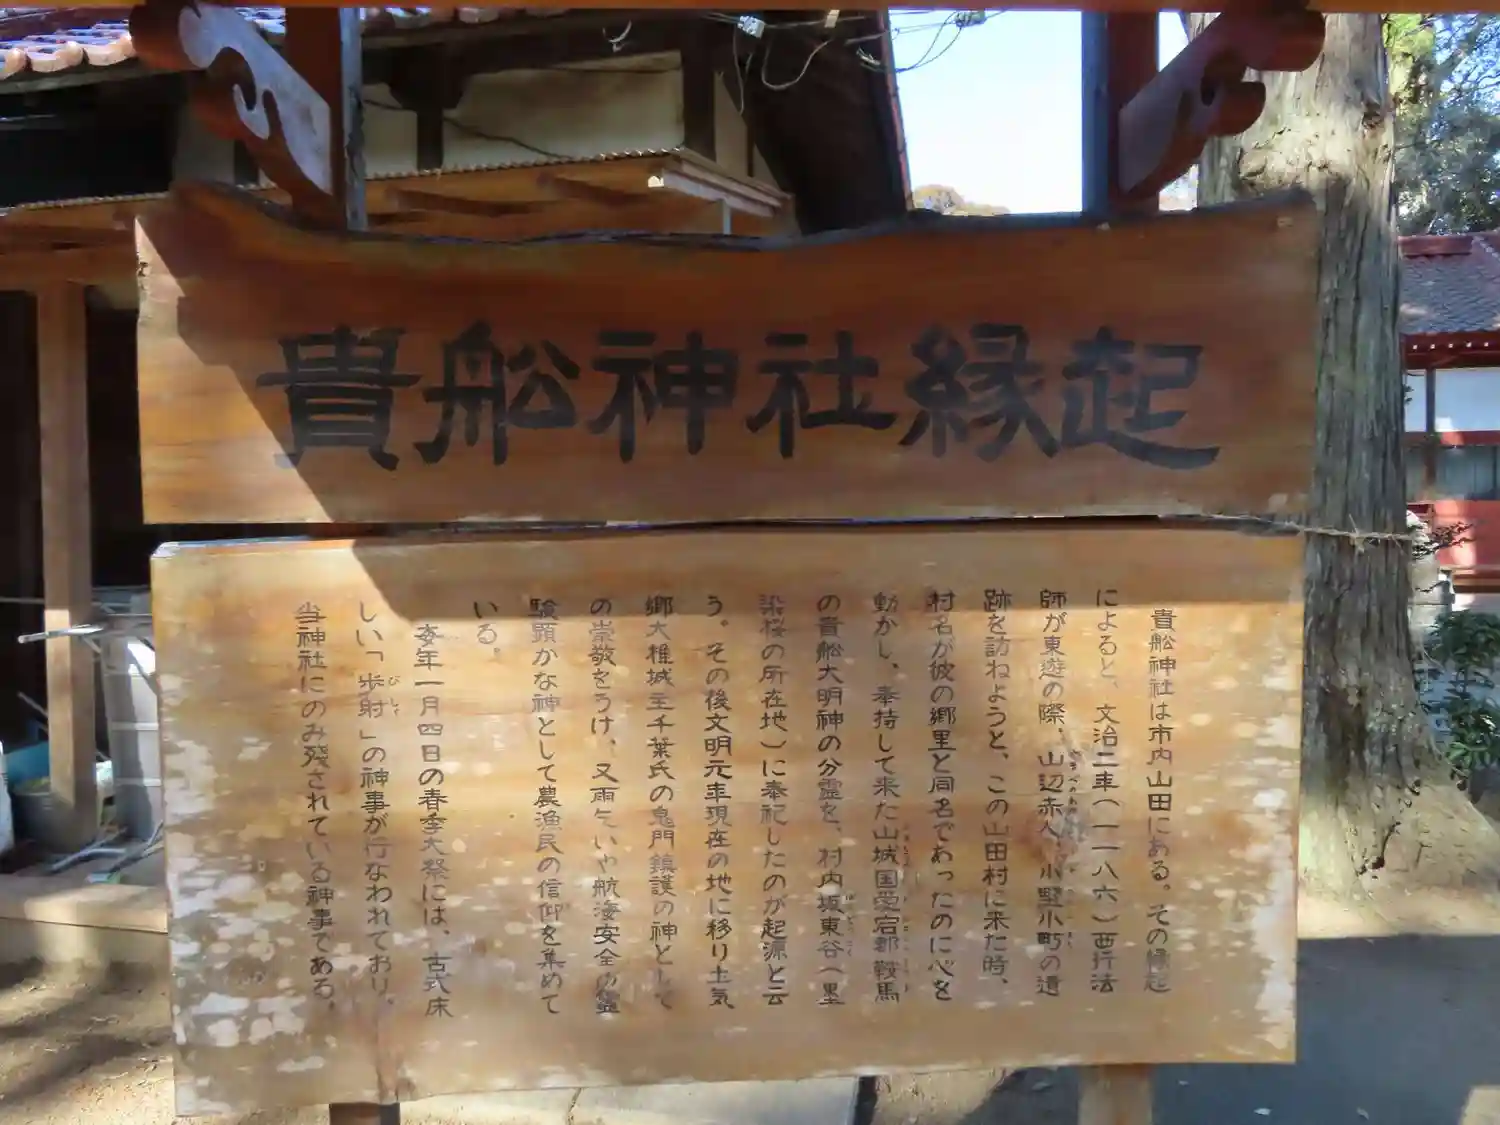 貴船神社縁起
貴船神社は市内山田にある。その縁起
によると、文治二年(一一八六)西行法
師が東遊の際、山辺赤人、小野小町の遺
跡を訪ねようと、この山田村に来た時、
村名が彼の郷里と同名であったのに心を
動かし、奉持して来た山城国愛宕郡鞍馬
の貴船大明神の分霊を、村内坂東谷(墨
染桜の所在地)に奉祀したのが起源と云
う。その後文明元年現在の地に移り土気
郷大椎城主千葉氏の鬼門鎮護の神として
の崇敬をうけ、又雨乞いや航海安全の霊
験顕かな神として農漁民の信仰を集めて
いる。
毎年一月四日の春季大祭には、古式床
しい「歩射」の神事が行なわれており、
当神社にのみ残されている神事である。